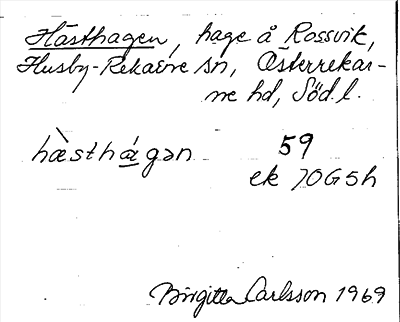 Hästhagen, hage å Rossvik,
Husby-Rekarne sn, Österrekar-
ne hd, Söd. l.
hæ̀sthágən 59
ek 10G5h
Birgitta Carlsson 1969